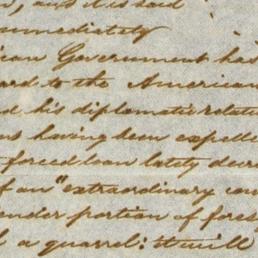 , and it is said
immediately
ican Government has
ard to the American
d his diplomatic relati
ns having been expelle
forced loan lately decre
f an "extraordinary con
ender portion of fores
a quarrel: it will